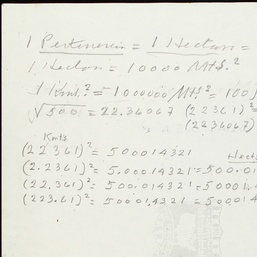 1 Pertenencia = 1 Hectan =
1 Hectan = 10000 Mts.²
1 Kmt.² = 1000000 Mts² = 100
√500 = 22.36067 (22361)²
(2236067)
Kmts
(22361)² = 500014321 Hecta
(2.2361)² = 5.00014321 = 500.01
(22.361)² = 500.014321 = 50001.4
(223.61)² = 50001.4321 = 500014